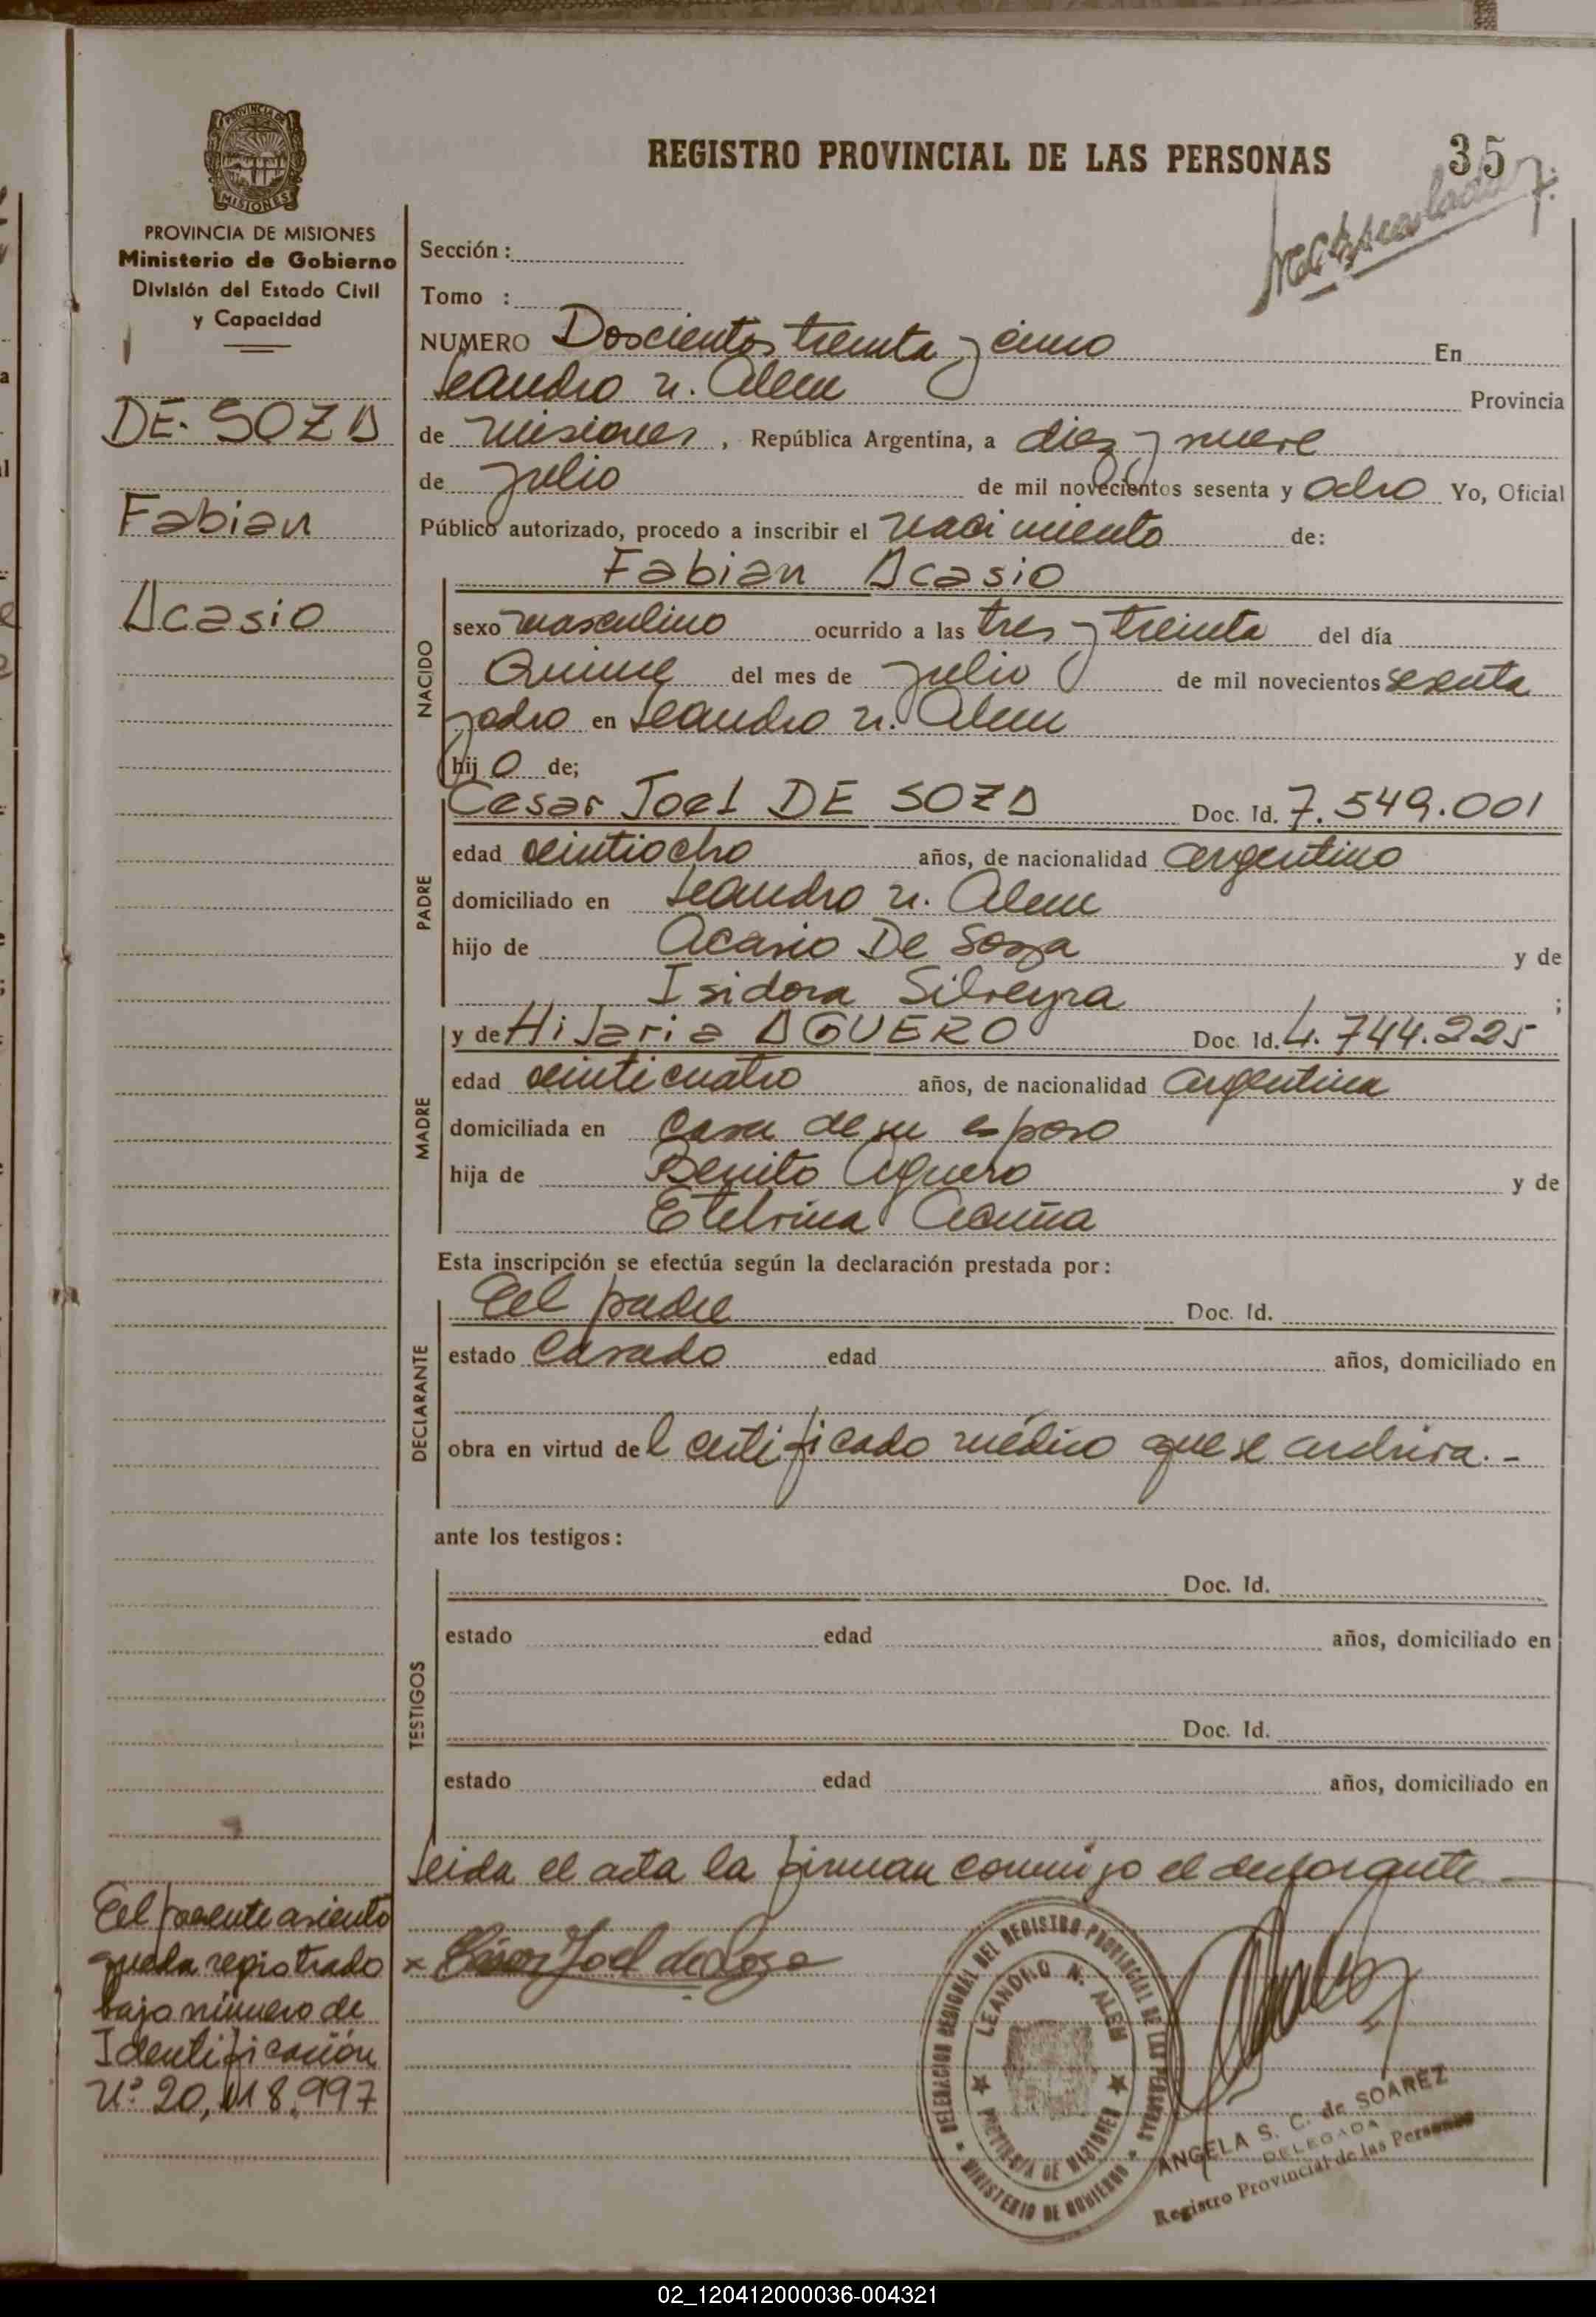 PROVINCIA DE
MISIONES
PROVINCIA DE MISIONES
Ministerio de Gobierno
División del Estado Civil
y Capacidad
DE SOZA
Fabian
Acasio
REGISTRO PROVINCIAL DE LAS PERSONAS 35
Sección :
Tomo :
NUMERO Doscientos treinta y cinco En
Leandro N. Alem Provincia
de Misiones, República Argentina, a diez y nueve
de Julio de mil novecientos sesenta y ocho Yo, Oficial
Público autorizado, procedo a inscribir el nacimiento de:
Fabian Acasio
NACIDO
sexo masculino ocurrido a las tres y treinta del día
Quince del mes de Julio de mil novecientos sesenta
y ocho en Leandro N. Alem
hijo de;
PADRE
Cesar Joel DE SOZA Doc. Id. 7.549.001
edad veintiocho años, de nacionalidad argentino
domiciliado en Leandro N. Alem
hijo de Acasio De Soza y de
Isidora Silveyra ;
MADRE
y de Hilaria AGUERO Doc. Id. 4.744.225
edad veinticuatro años, de nacionalidad argentina
domiciliada en casa de su esposo
hija de Benito Aguero y de
Etelvina Acuña
Esta inscripción se efectúa según la declaración prestada por:
DECLARANTE
El padre Doc. Id.
estado Casado edad años, domiciliado en
obra en virtud del certificado médico que se archiva.-
ante los testigos:
TESTIGOS
Doc. Id.
estado edad años, domiciliado en
Doc. Id.
estado edad años, domiciliado en
Leida el acta la firman conmigo el
El presente asiento
queda registrado
bajo número de
Identificación
Nº 20,118,997
x Cesar Joel de Soza
DELEGACION REGIONAL DEL REGISTRO PROVINCIAL DE LAS PERSONAS
LEANDRO N. ALEM
PROVINCIA DE MISIONES
MINISTERIO DE GOBIERNO
ANGELA S. C. de SOAREZ
DELEGADA
Registro Provincial de las Personas
02_120412000036-004321